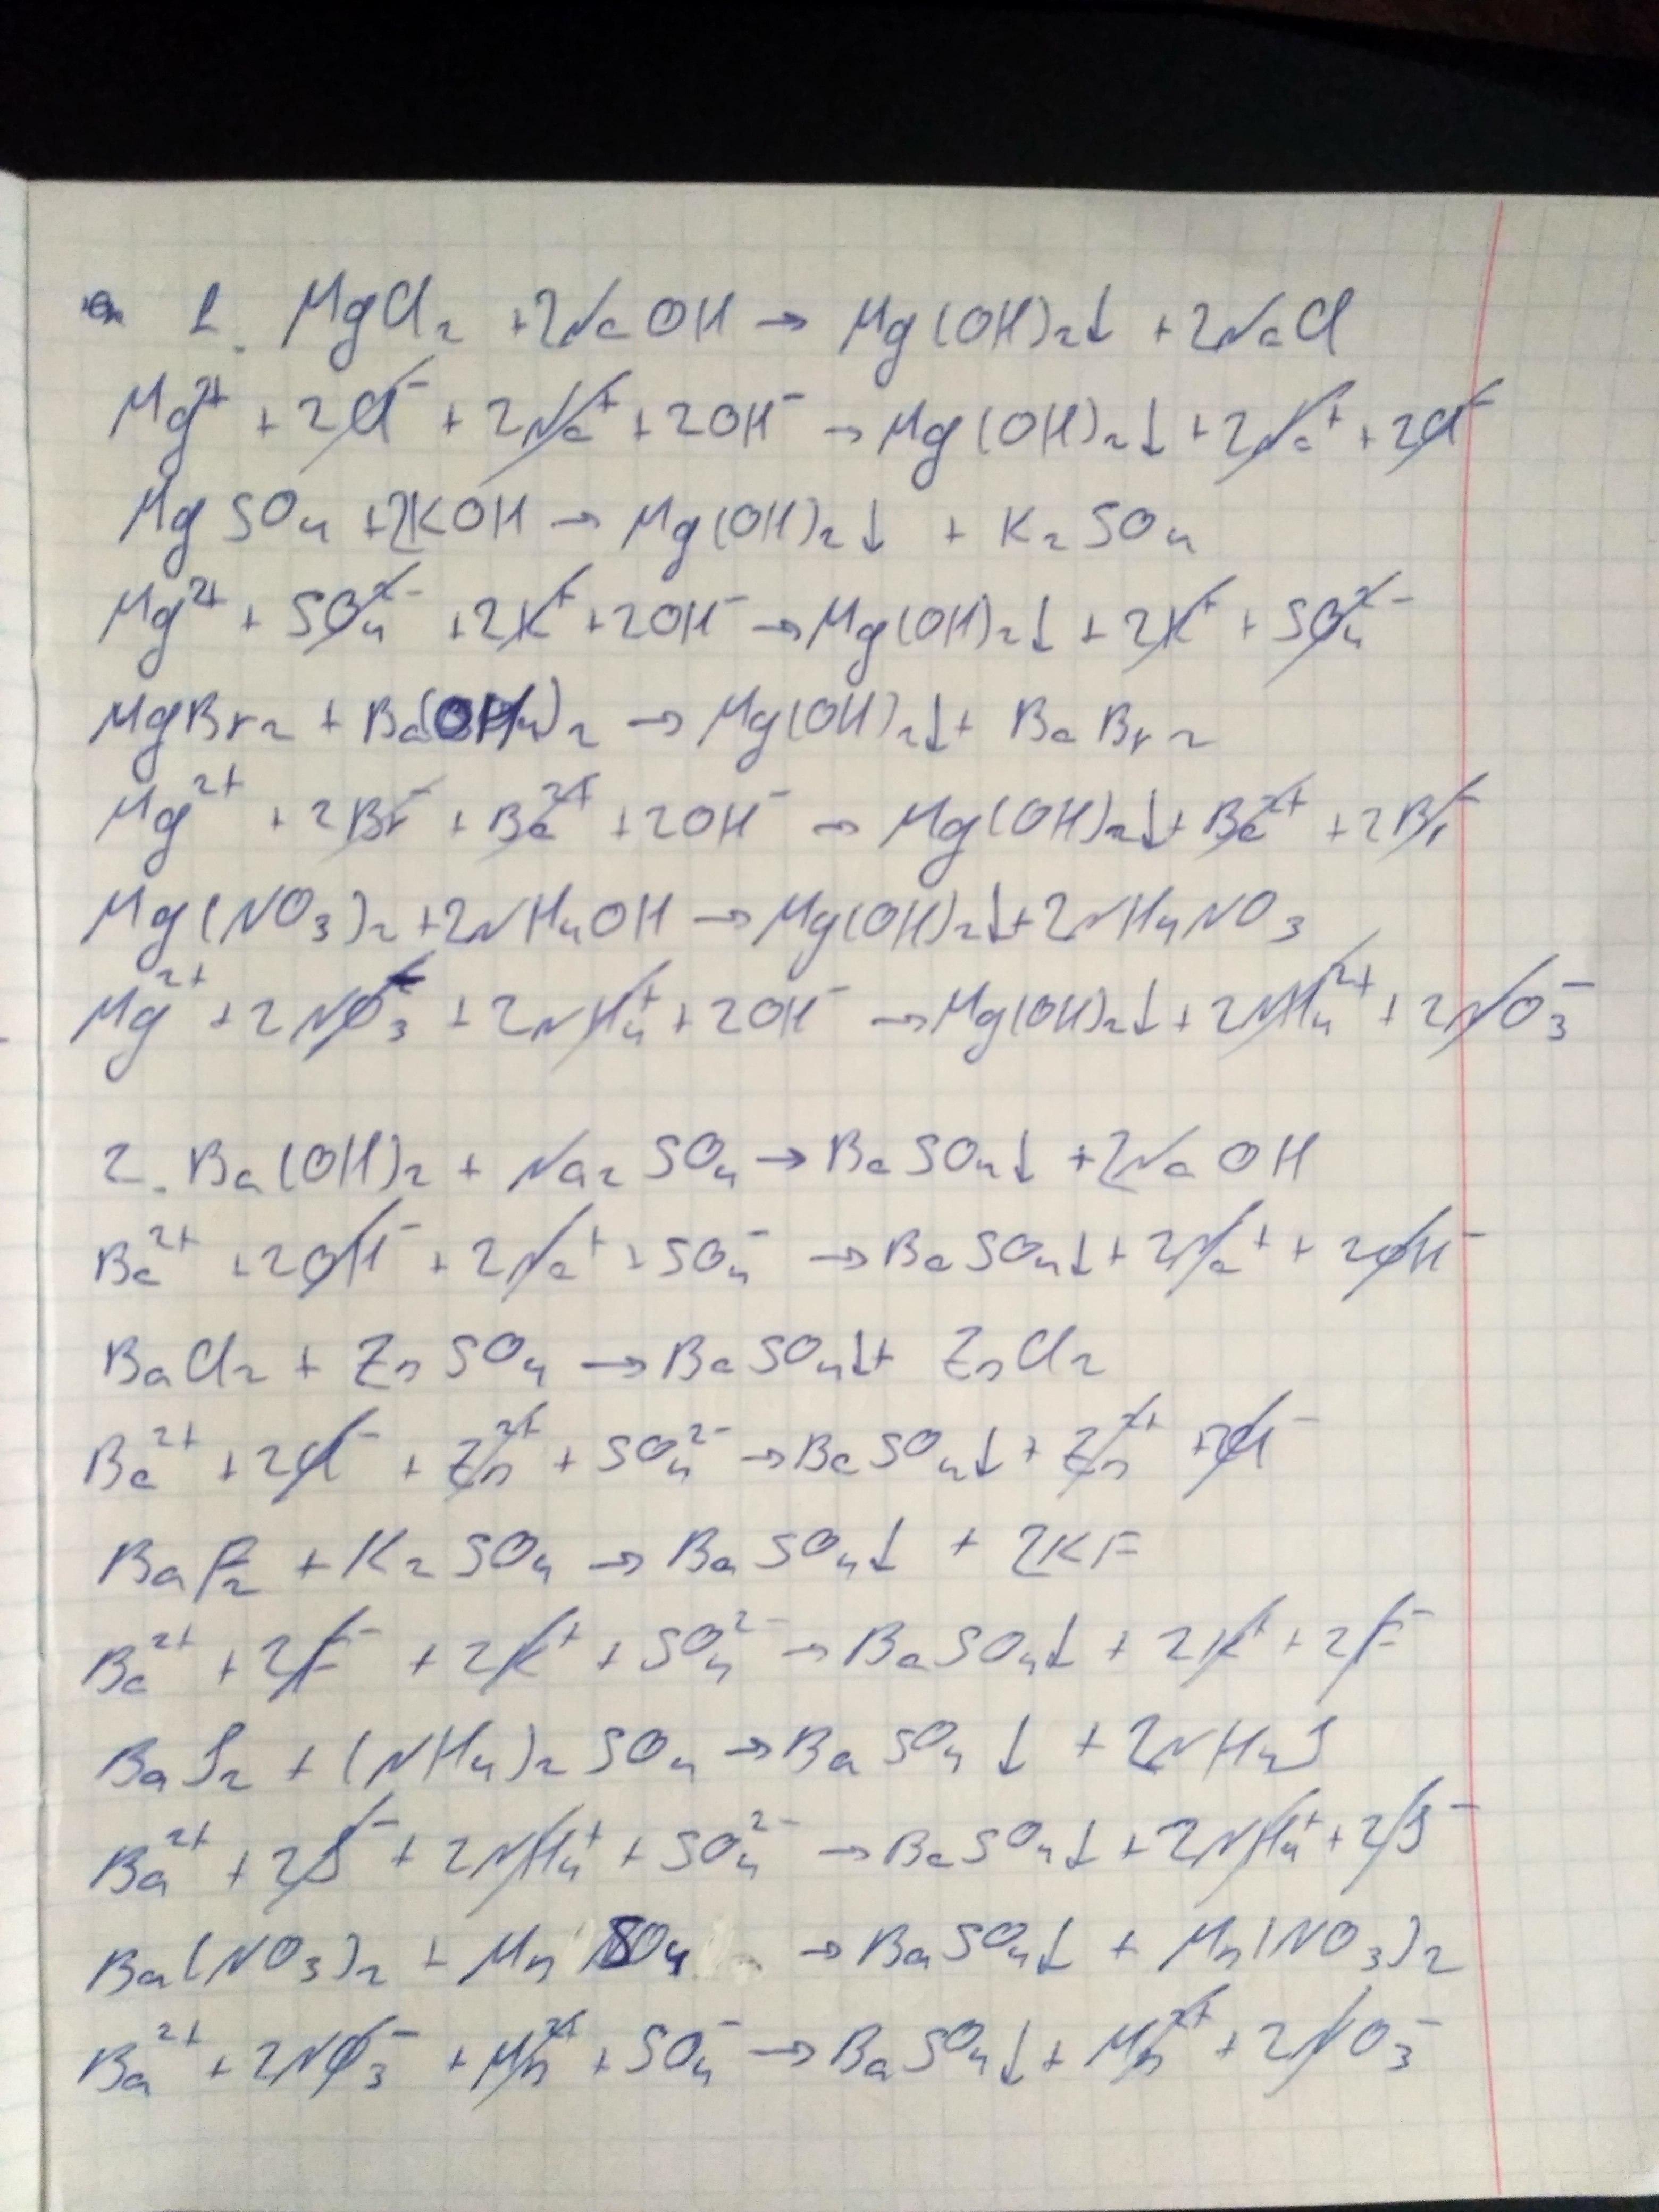 1. MgCl₂ + 2NaOH → Mg(OH)₂↓ + 2NaCl
Mg²⁺ + 2Cl⁻ + 2Na⁺ + 2OH⁻ → Mg(OH)₂↓ + 2Na⁺ + 2Cl⁻
MgSO₄ + 2KOH → Mg(OH)₂↓ + K₂SO₄
Mg²⁺ + SO₄²⁻ + 2K⁺ + 2OH⁻ → Mg(OH)₂↓ + 2K⁺ + SO₄²⁻
MgBr₂ + Ba(OH)₂ → Mg(OH)₂↓ + BaBr₂
Mg²⁺ + 2Br⁻ + Ba²⁺ + 2OH⁻ → Mg(OH)₂↓ + Ba²⁺ + 2Br⁻
Mg(NO₃)₂ + 2NH₄OH → Mg(OH)₂↓ + 2NH₄NO₃
Mg²⁺ + 2NO₃⁻ + 2NH₄⁺ + 2OH⁻ → Mg(OH)₂↓ + 2NH₄²⁺ + 2NO₃⁻
2. Ba(OH)₂ + Na₂SO₄ → BaSO₄↓ + 2NaOH
Ba²⁺ + 2OH⁻ + 2Na⁺ + SO₄⁻ → BaSO₄↓ + 2Na⁺ + 2OH⁻
BaCl₂ + ZnSO₄ → BaSO₄↓ + ZnCl₂
Ba²⁺ + 2Cl⁻ + Zn²⁺ + SO₄²⁻ → BaSO₄↓ + Zn²⁺ + 2Cl⁻
BaF₂ + K₂SO₄ → BaSO₄↓ + 2KF
Ba²⁺ + 2F⁻ + 2K⁺ + SO₄²⁻ → BaSO₄↓ + 2K⁺ + 2F⁻
BaS₂ + (NH₄)₂SO₄ → BaSO₄↓ + 2NH₄S
Ba²⁺ + 2S⁻ + 2NH₄⁺ + SO₄²⁻ → BaSO₄↓ + 2NH₄⁺ + 2S⁻
Ba(NO₃)₂ + MnSO₄ → BaSO₄↓ + Mn(NO₃)₂
Ba²⁺ + 2NO₃⁻ + Mn²⁺ + SO₄⁻ → BaSO₄↓ + Mn²⁺ + 2NO₃⁻